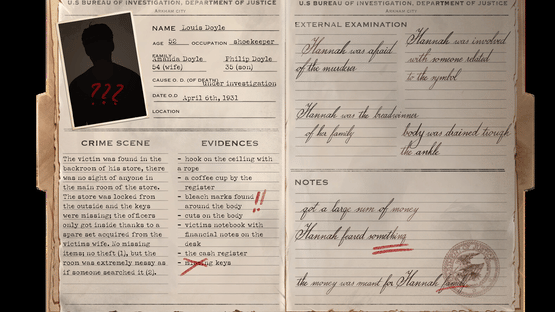 U.S BUREAU OF INVESTIGATION, DEPARTMENT OF JUSTICE
ARKHAM CITY
NAME Louis Doyle
AGE 52 OCCUPATION shoekeeper
FAMILY
Amanda Doyle Philip Doyle
54 (wife) 35 (son)
CAUSE O. D. (OF DEATH) Under investigation
DATE O.D April 6th, 1931
LOCATION
???
CRIME SCENE
The victim was found in the
backroom of his store, there
was no sight of anyone in
the main room of the store.
The store was locked from
the outside and the keys
were missing; the officers
only got inside thanks to a
spare set acquired from the
victims wife. No missing
items; no theft (1), but the
room was extremely messy as
if someone searched it (2).
EVIDENCES
- hook on the ceiling with
a rope
- a coffee cup by the
register
- bleach marks found
around the body
!!
- cuts on the body
- victims notebook with
financial notes on the
desk
- the cash register
- Missing keys
U.S BUREAU OF INVESTIGATION, DEPARTMENT OF JUSTICE
ARKHAM CITY
EXTERNAL EXAMINATION
Hannah was afraid
of the murderer
Hannah was involved
with someone related
to the symbol
Hannah was the breadwinner
of her family
body was drained trough
the ankle
NOTES
got a large sum of money
Hannah feared something
the money was meant for Hannah family